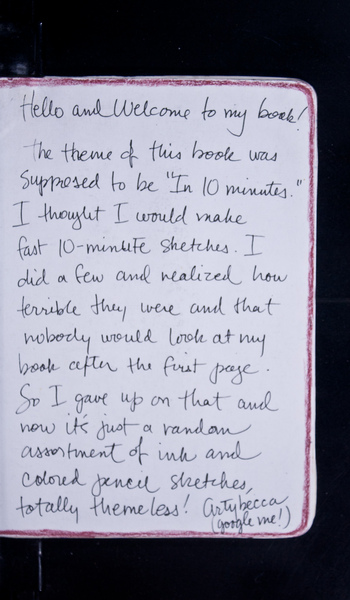 Hello and Welcome to my book!
The theme of this book was
supposed to be "In 10 minutes."
I thought I would make
fast 10-minute sketches. I
did a few and realized how
terrible they were and that
nobody would look at my
book after the first page.
So I gave up on that and
now it's just a random
assortment of ink and
colored pencil sketches,
totally themeless! Artybecca
(google me!)